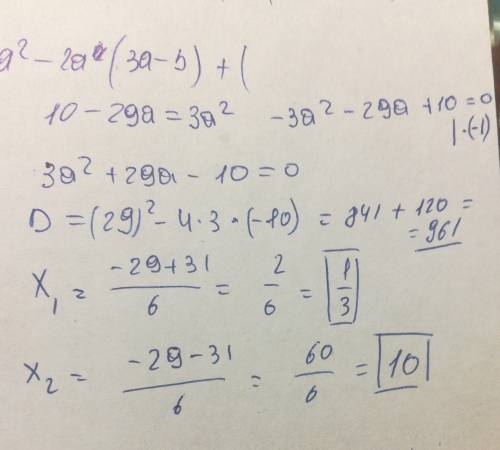 a² - 2a(3a-b) + (
10 - 29a = 3a² -3a² - 29a + 10 = 0
|·(-1)
3a² + 29a - 10 = 0
D = (29)² - 4·3·(-10) = 841 + 120 =
= 961
X₁ = (-29+31)/6 = 2/6 = 1/3
X₂ = (-29-31)/6 = 60/6 = 10